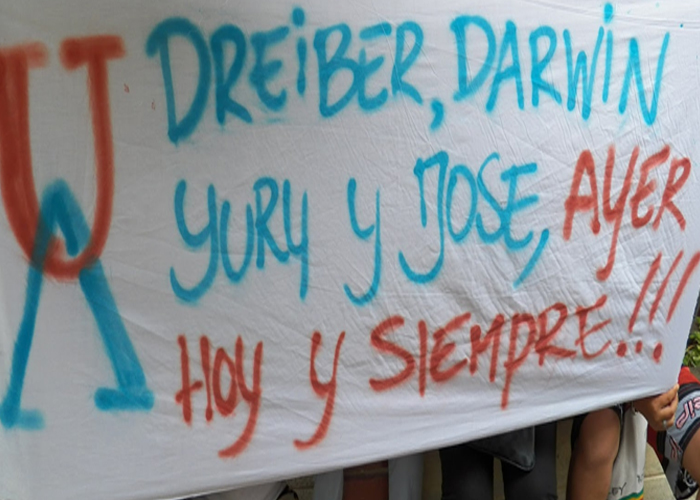 UA
DREIBER, DARWIN
YURY Y JOSE, AYER
HOY Y SIEMPRE!!!